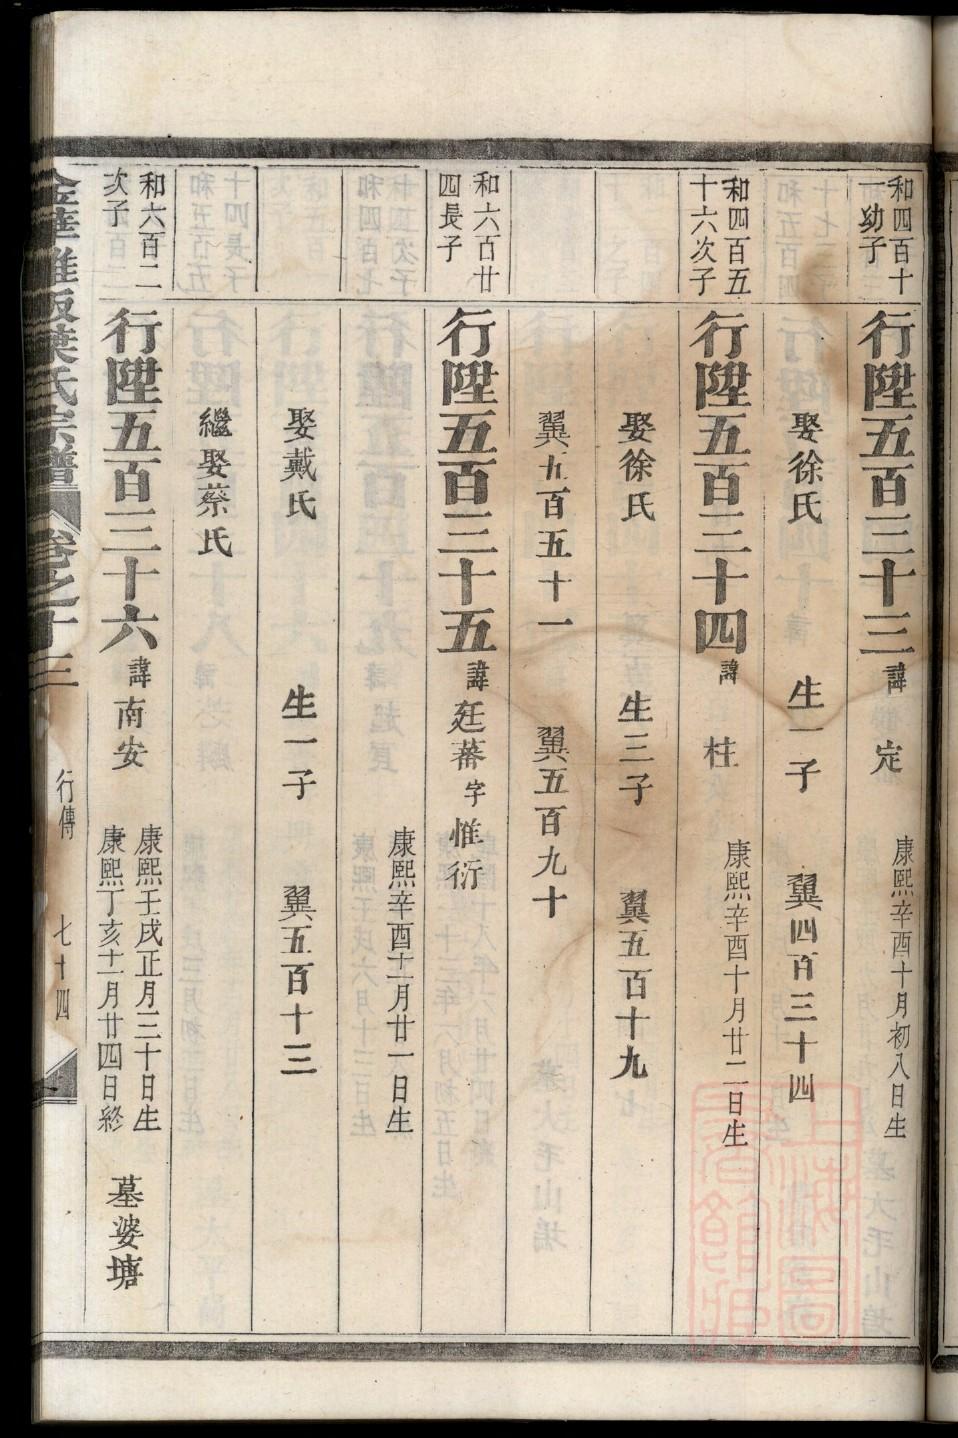 和四百十
幼子
行陞五百三十三 諱 定 康熙辛酉十月初八日生
娶徐氏 生一子 翼四百三十四
和四百五
十六次子
行陞五百三十四 諱 柱 康熙辛酉十月廿二日生
娶徐氏 生三子 翼五百十九
翼九百五十一 翼五百九十
和六百廿
四長子
行陞五百三十五 諱 廷蕃 字 惟衍 康熙辛酉十二月廿一日生
娶戴氏 生一子 翼五百十三
繼娶蔡氏
和六百二
次子
行陞五百三十六 諱 南安 康熙壬戌正月三十日生
康熙丁亥十一月廿四日終 墓婆塘
葉氏宗譜 卷之十三 行傳 七十四
上海圖書館藏